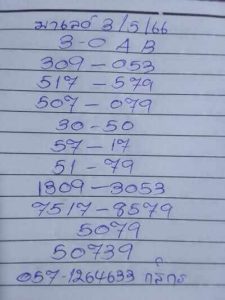 มาเลย์ 3/5/66
3-0 A B
309-053
517-579
507-079
30-50
57-17
51-79
1309-3053
7517-8579
5079
50739
057-1264633 กสิกร